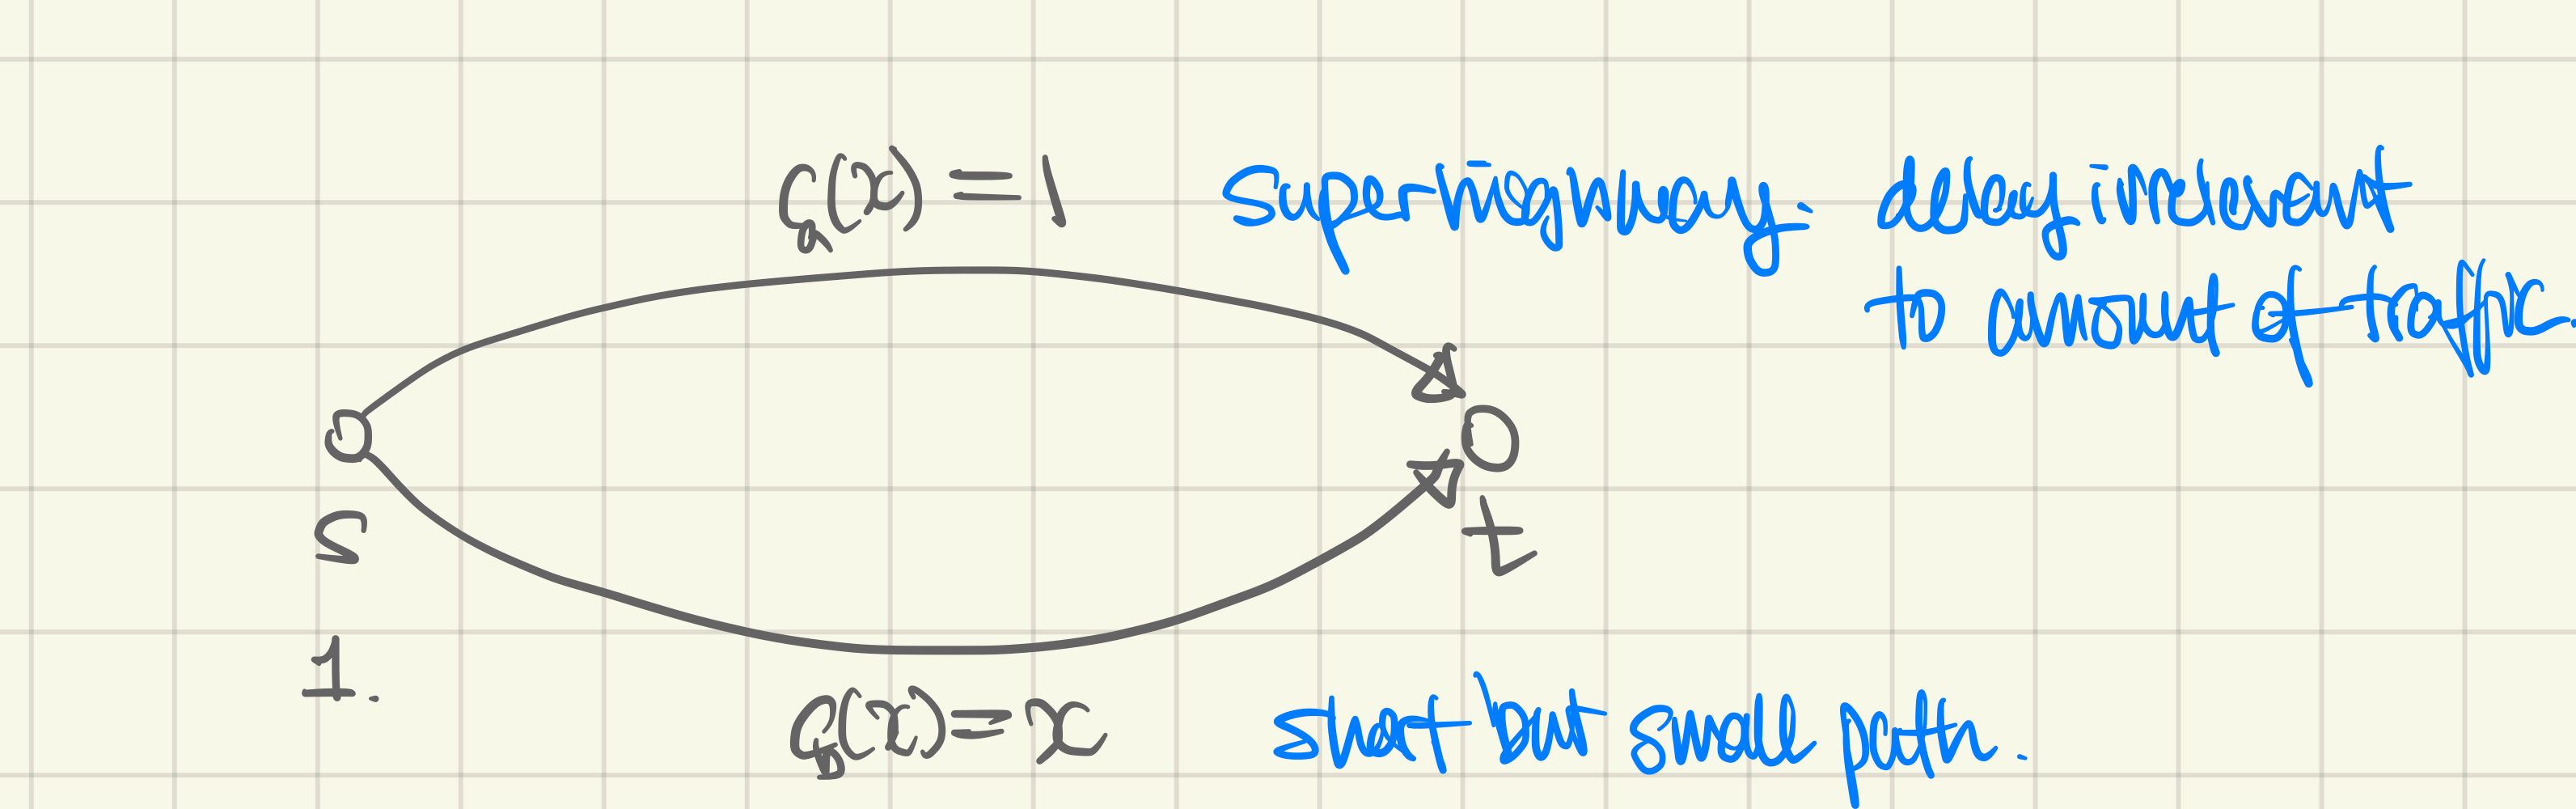 Ca(x) = 1
superhighway: delay irrelevant
to amount of traffic.
s
t
1.
Cb(x) = x
short but small path.